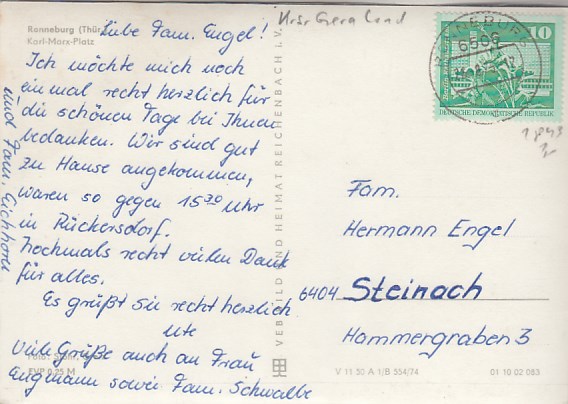 Ronneburg (Thür.)
Karl-Marx-Platz
Liebe Fam. Engel!
Ich möchte mich noch
einmal recht herzlich für
die schönen Tage bei Ihnen
bedanken. Wir sind gut
zu Hause angekommen,
waren so gegen 15³⁰ Uhr
in Rückersdorf.
Nochmals recht vielen Dank
für alles.
Es grüßt Sie recht herzlich
Ute
Viele Grüße auch an Frau
Engmann sowie Fam. Schwalbe
und Fam. Eichhorn
EVP 0,25 M
VEB BILD UND HEIMAT REICHENBACH i. V.
Krsr Gera Land
10
DEUTSCHE DEMOKRATISCHE REPUBLIK
Fam.
Hermann Engel
6404 Steinach
Hammergraben 3
V 11 50 A 1/B 554/74
01 10 02 083